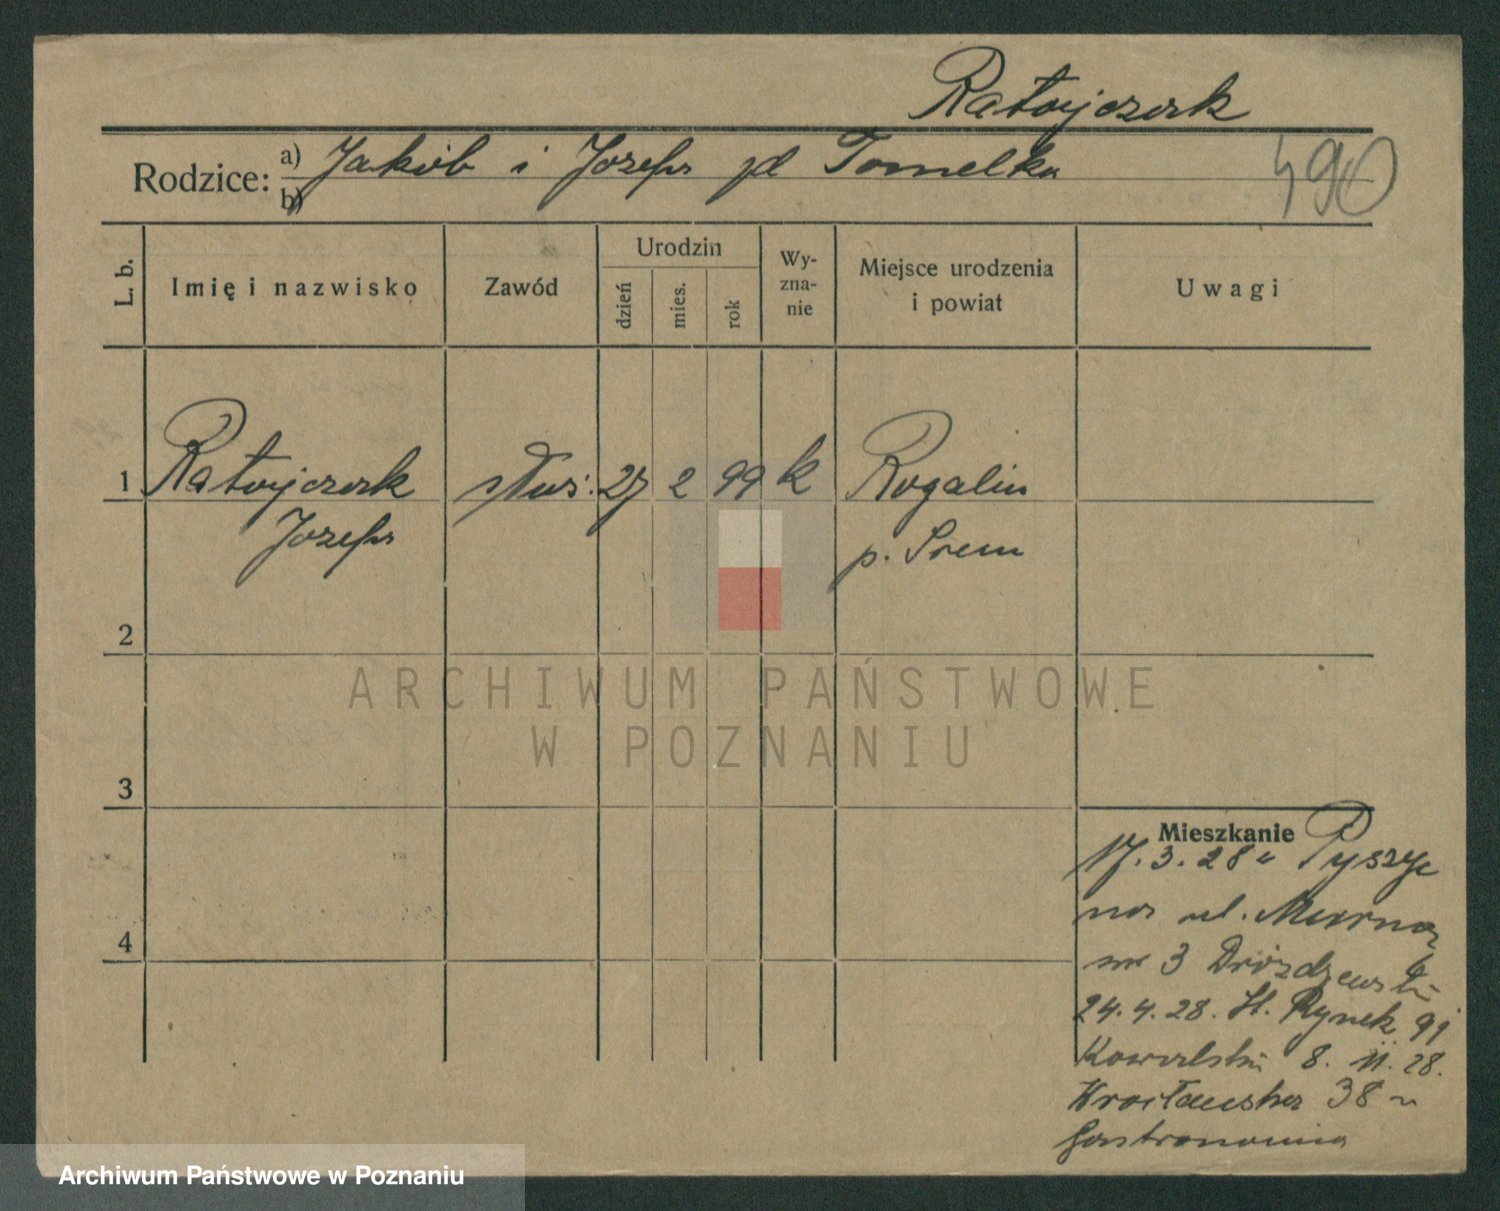 Ratajczak
Rodzice: a) Jakób i Józefa zd Tomelka
b)
490
L. b.
Imię i nazwisko
Zawód
Urodzin
dzień
mies.
rok
Wy-
zna-
nie
Miejsce urodzenia
i powiat
Uwagi
1 Ratajczak służ. 27 2 99 k Rogalin
Józefa p. Śrem
2
3
4
Mieszkanie
17.3.28 Pyszcy
na ul. Murna
nr 3 Dróżdzewski
24.4.28. St. Rynek 91
Kowalski 8. 11. 28.
Wrocławska 38 u
Gastronomia
ARCHIWUM PAŃSTWOWE
W POZNANIU
Archiwum Państwowe w Poznaniu